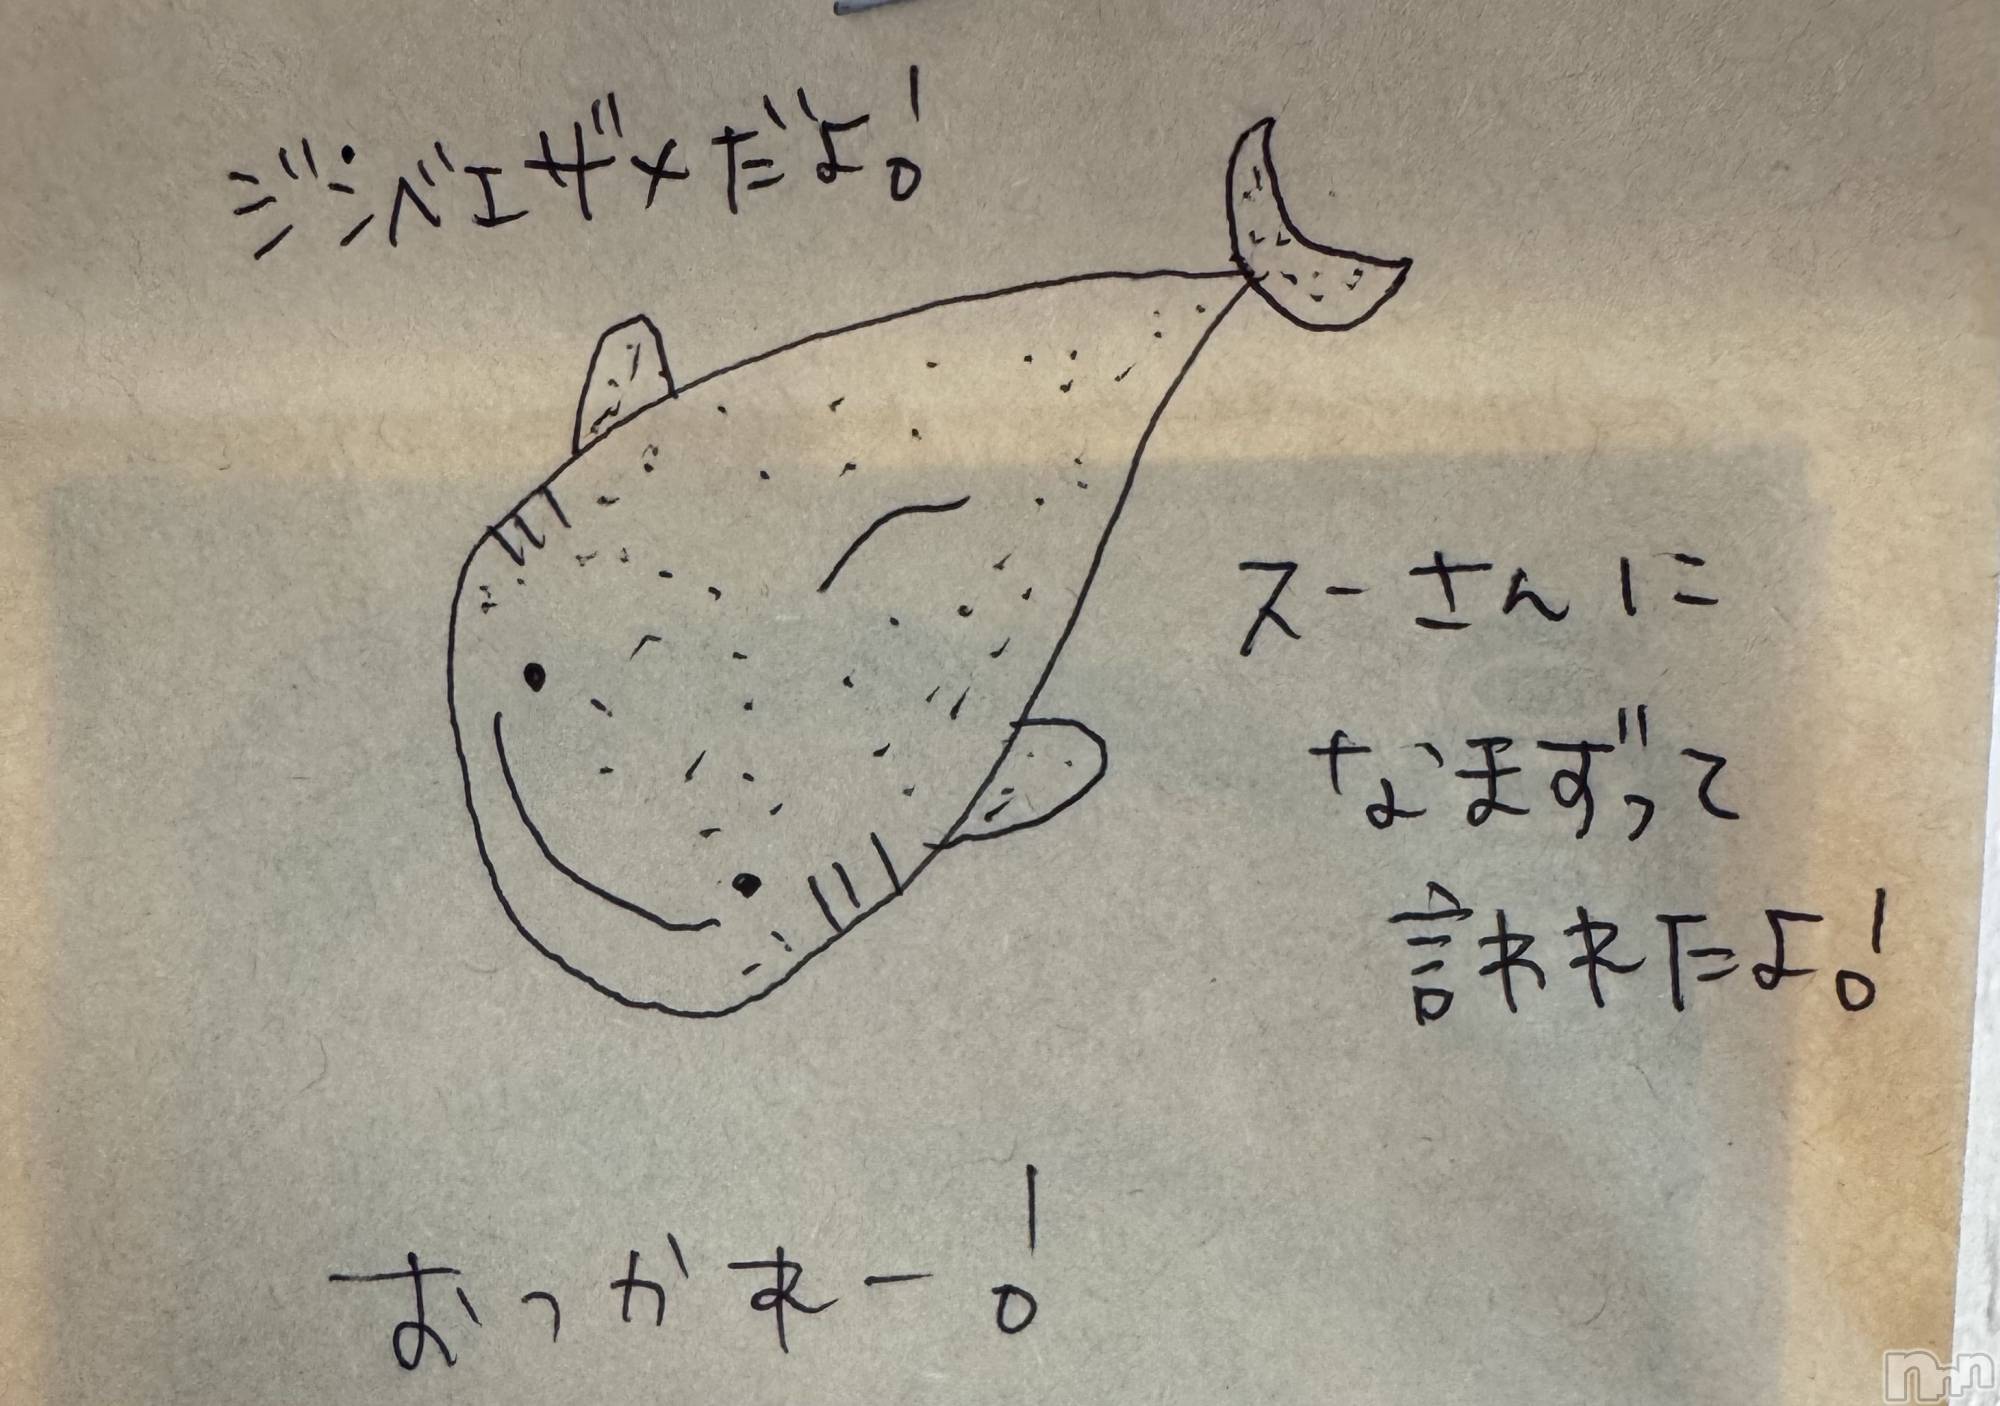 ジンベエザメだよ!
スーさんに
なまずって
言われたよ!
おっかれー!
nmn